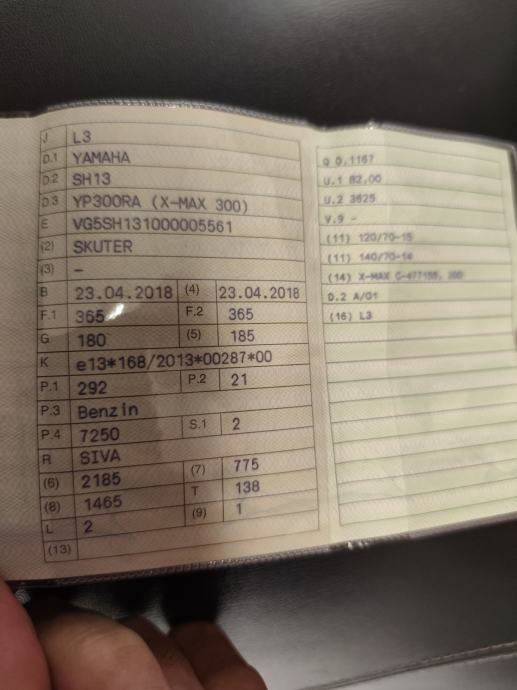 J L3
D.1 YAMAHA
D.2 SH13
D.3 YP300RA (X-MAX 300)
E VG5SH131000005561
(2) SKUTER
(3) –
B 23.04.2018 (4) 23.04.2018
F.1 365 F.2 365
G 180 (5) 185
K e13*168/2013*00287*00
P.1 292 P.2 21
P.3 Benzin
P.4 7250 S.1 2
R SIVA
(6) 2185 (7) 775
(8) 1465 T 138
L 2 (9) 1
(13)
Q 0,1167
U.1 82,00
U.2 3625
V.9 -
(11) 120/70-15
(11) 140/70-14
(14) X-MAX 300
D.2 A/01
(16) L3